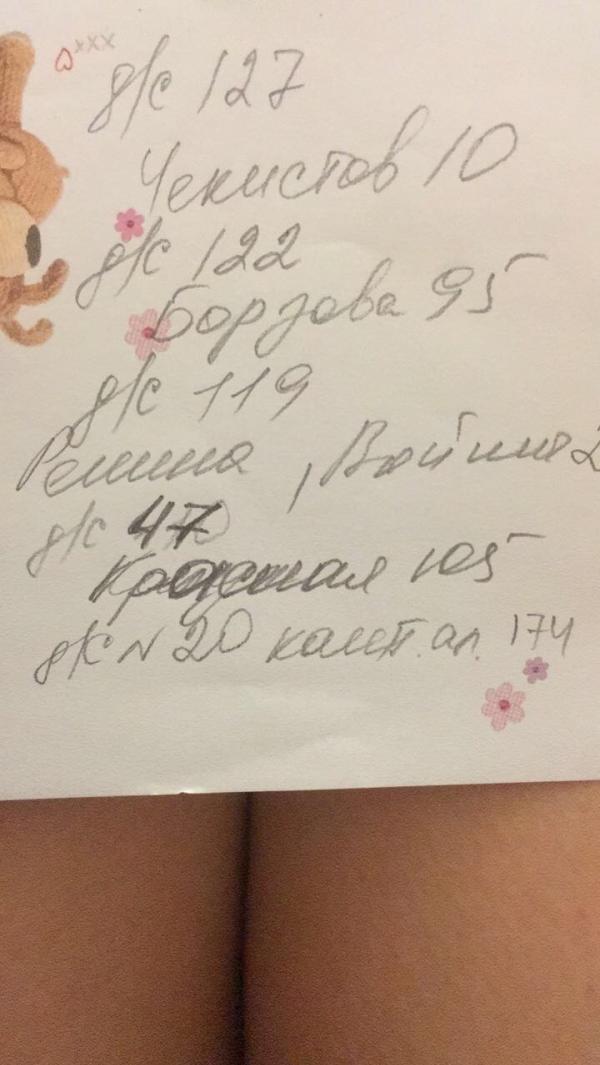 xxx
д/с 127
Чекистов 10
д/с 122
Борзова 95
д/с 119
Репина , Войние 2
д/с 47
Красная 105
д/с № 20 кашт. ал. 174